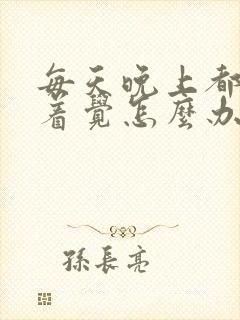 每天晚上都
着覺怎麼办
孫長亮